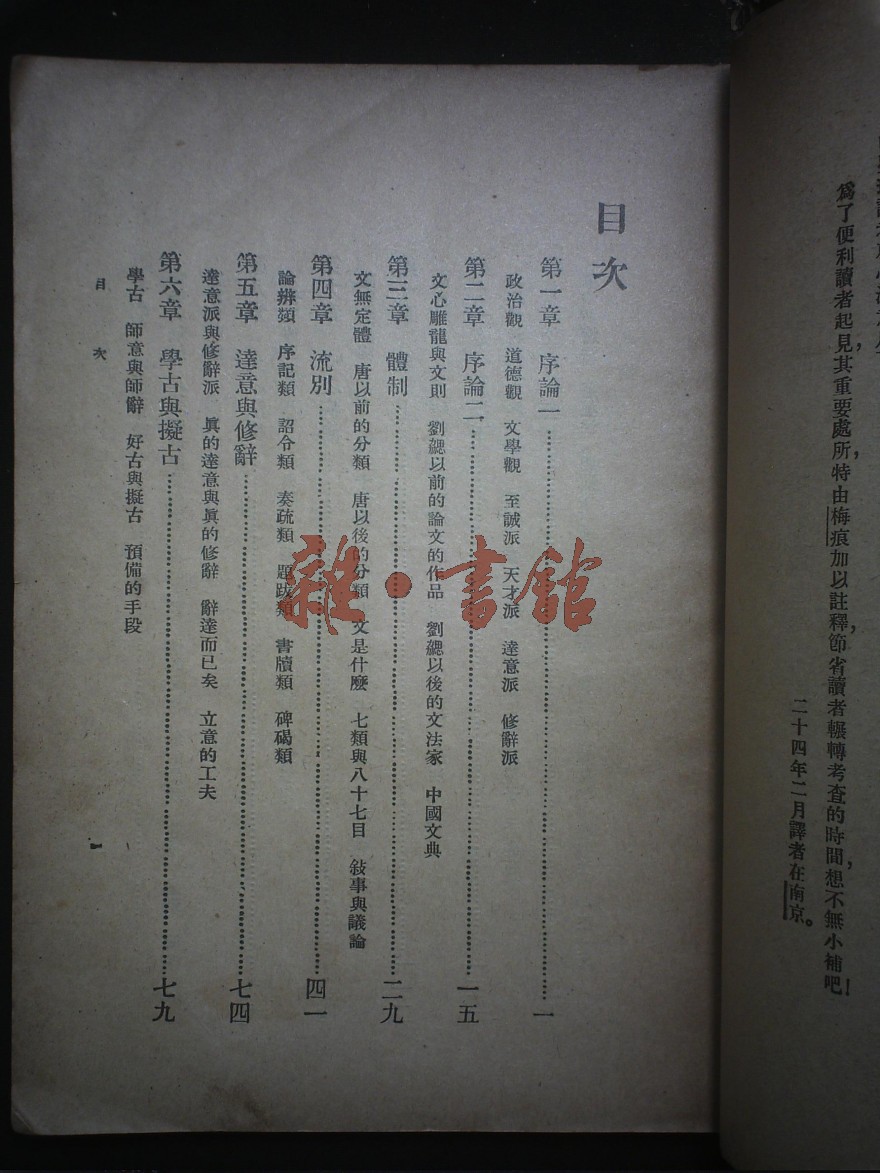 爲了便利讀者起見,其重要處所,特由梅痕加以註釋,節省讀者輾轉考查的時間,想不無小補吧!
二十四年二月譯者在南京。
目次
第一章 序論一 一
政治觀 道德觀 文學觀 至誠派 天才派 達意派 修辭派
第二章 序論二 一五
文心雕龍與文則 劉勰以前的論文的作品 劉勰以後的文法家 中國文典
第三章 體制 二九
文無定體 唐以前的分類 唐以後的分類 文是什麼 七類與八十七目 敍事與議論
第四章 流別 四一
論辨類 序記類 詔令類 奏疏類 題跋類 書牘類 碑碣類
第五章 達意與修辭 七四
達意派與修辭派 眞的達意與眞的修辭 辭達而已矣 立意的工夫
第六章 學古與擬古 七九
學古 師意與師辭 好古與擬古 預備的手段
目次
一
雜·書館